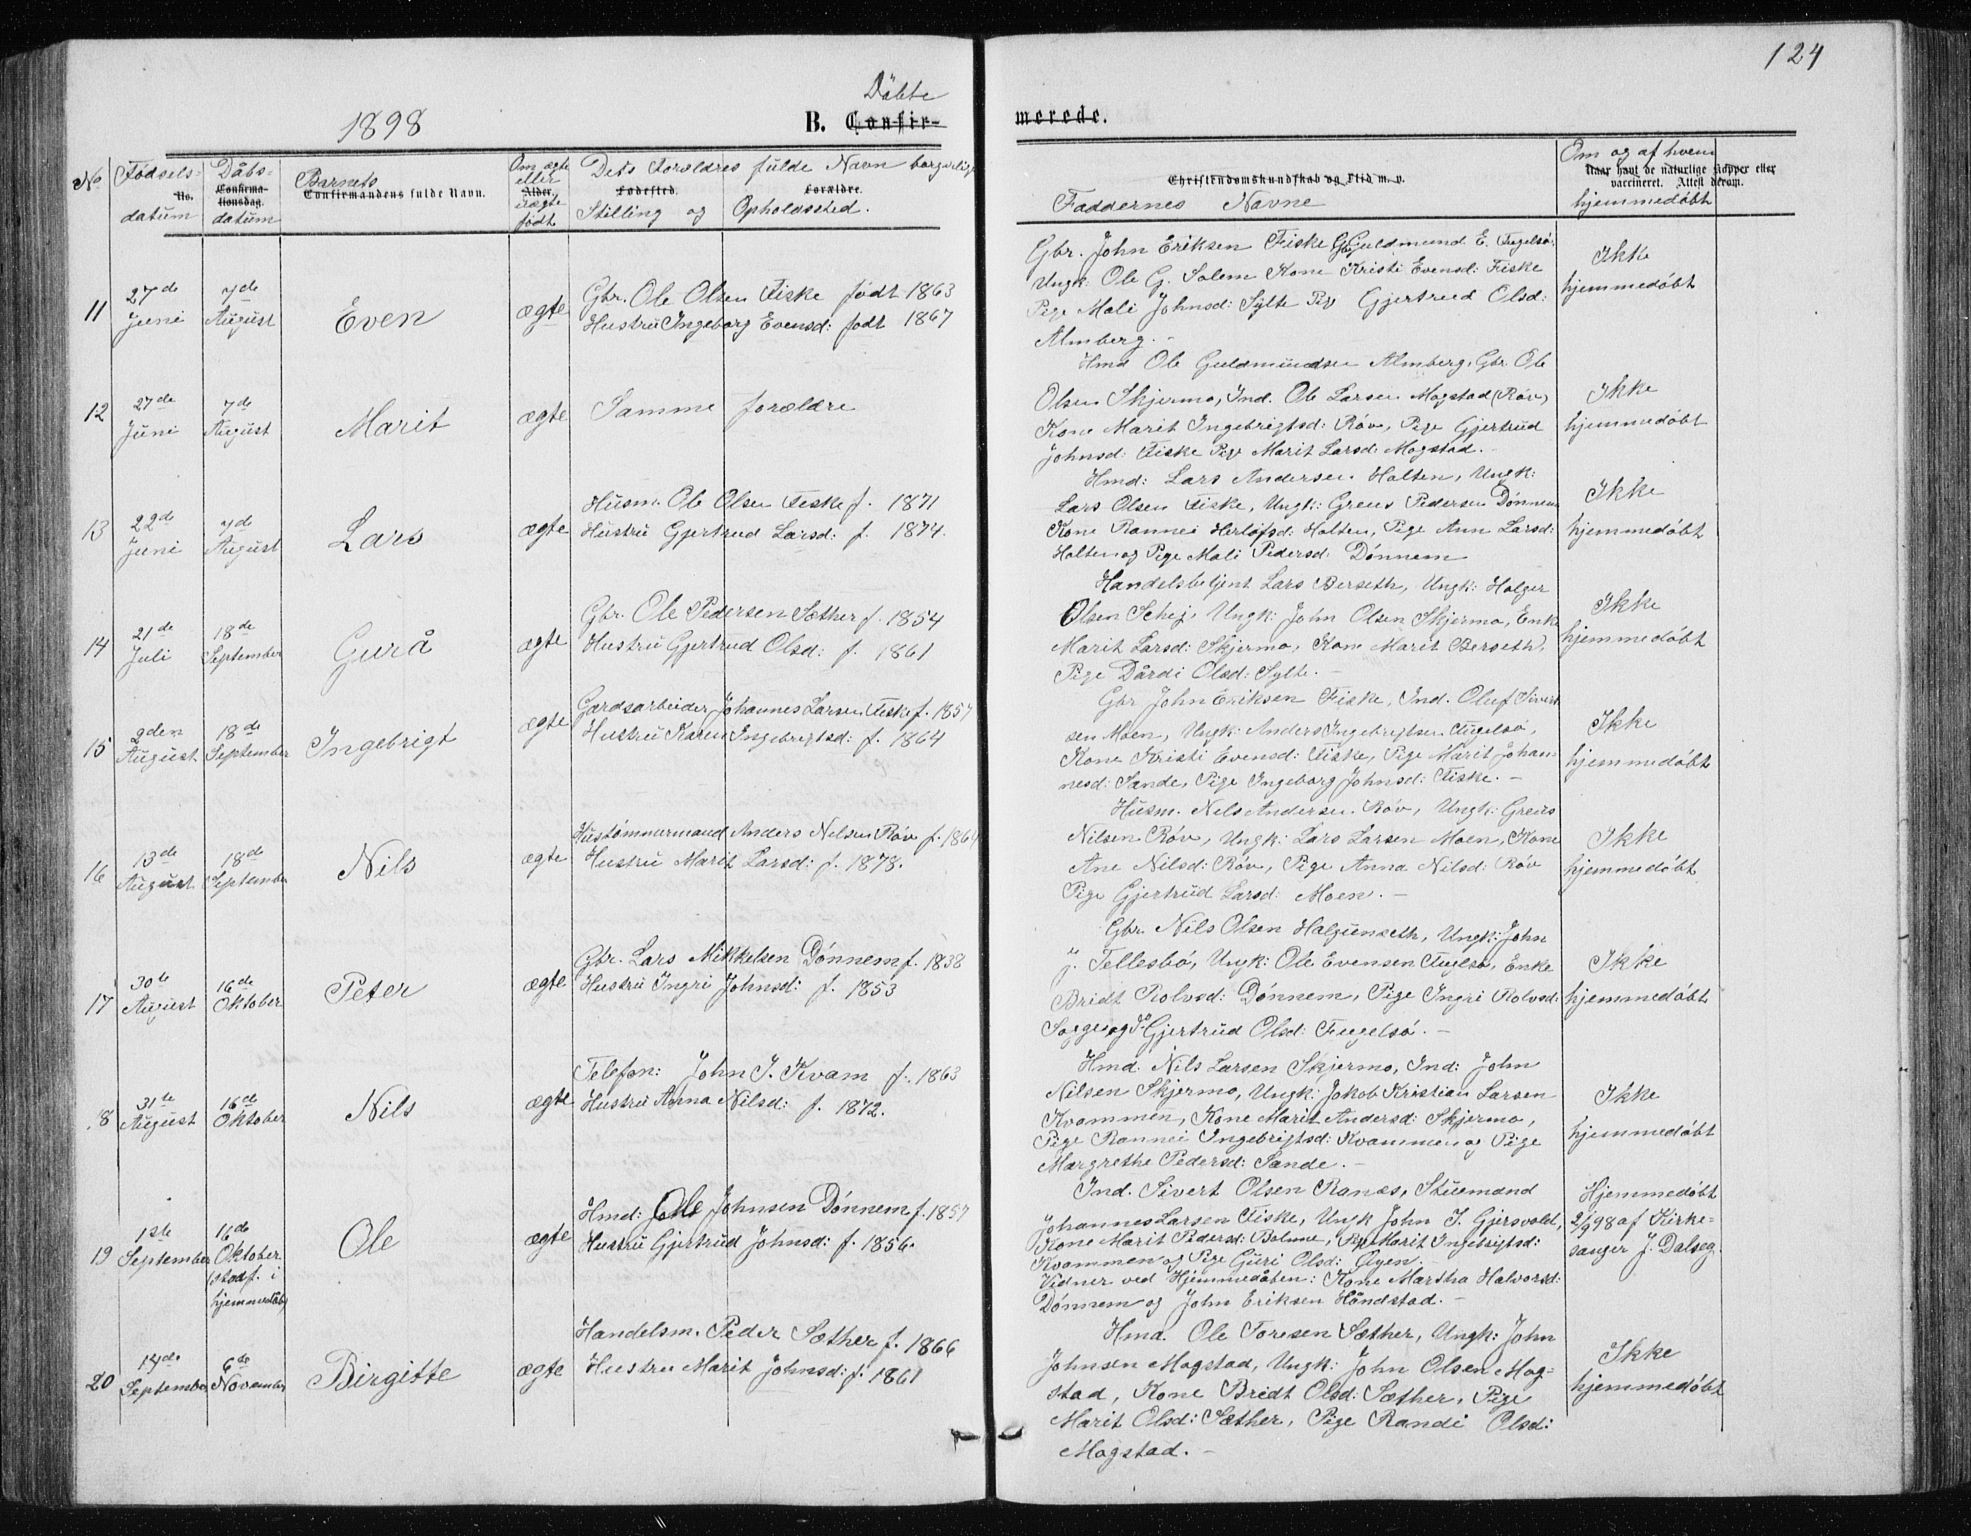 124
1898
Döbte
B. Confir-
merede.
No
Fødsels-
No.
datum
Dåbs-
Confirma-
tionsdag.
datum
Barnets
Confirmandens fulde Navn.
Om ægte
eller
Alder.
uægte
født
Dets Forældres fulde Navn borgerlige
Fødested.
Forældre.
Stilling og Opholdssted.
Christendomskundskab og Flid m. v.
Faddernes Navne
Om og af hvem
Naar havt de naturlige Kopper eller
vaccineret. Attest derom.
hjemmedøbt
11
27de
Juni
7de
August
Even
ægte
Gbr. Ole Olsen Fiske født 1863
Hustru Ingeborg Evensd: født 1867
Gbr. John Eriksen Fiske Gbr Guldmund E. Fugelsø.
Ungk: Ole G. Solem Kone Kristi Evensd: Fiske
Pige Mali Johnsd: Sylte Pige Gjertrud Olsd:
Almberg. -
Ikke
hjemmedøbt
12
27de
Juni
7de
August
Marit
ægte
Samme forældre
Hmd Ole Guldmundsen Almberg, Gbr. Ole
Olsen Skjermo, Ind. Ole Larsen Mogstad (Røv)
Kone Marit Ingebrigtsd: Røv, Pige Gjertrud
Johnsd: Fiske Pige Marit Larsd: Mogstad. -
Ikke
hjemmedøbt
13
22de
Juni
7de
August
Lars
ægte
Husm. Ole Olsen Fiske f. 1871
Hustru Gjertrud Larsd: f. 1874.
Hmd: Lars Andersen Holten, Ungk:
Lars Olsen Fiske, Ungk: Greus Pedersen Dønnem
Kone Rannei Herlofsd: Holten, Pige Ann Larsd:
Holten og Pige Mali Pedersd: Dønnem
Ikke
hjemmedøbt
14
21de
Juli
18de
September
Gurå
ægte
Gbr. Ole Pedersen Sæther f. 1854
Hustru Gjertrud Olsd: f. 1861
Handelsbetjent Lars Berseth, Ungk: Holger
Olsen Schej, Ungk: John Olsen Skjermo, Enke
Marit Larsd: Skjermo, Kone Marit Berseth,
Pige Dårdi Olsd: Sylte. -
Ikke
hjemmedøbt
15
9den
August
18de
September
Ingebrigt
ægte
Gardsarbeider Johannes Larsen Fiske f. 1857
Hustru Karen Ingebrigtsd: f. 1864
Gbr John Eriksen Fiske, Ind. Oluf Sivert
sen Moen, Ungk: Anders Ingebrigtsen Fugelsø,
Kone Kristi Evensd: Fiske, Pige Marit Johan-
nesd: Sande, Pige Ingeborg Johnsd: Fiske. -
Ikke
hjemmedøbt
16
13de
August
18de
September
Nils
ægte
Hustømmermand Anders Nilsen Røv f. 1864
Hustru Marit Larsd: f. 1878.
Husm. Nils Andersen Røv, Ungk: Greus
Nilsen Røv, Ungk: Lars Larsen Moen, Kone
Ane Nilsd: Røv, Pige Anna Nilsd: Røv
Pige Gjertrud Larsd: Moen. -
Ikke
hjemmedøbt
17
30te
August
16de
Oktober
Peter
ægte
Gbr. Lars Mikkelsen Dønnem f. 1838
Hustru Ingri Johnsd: f. 1853
Gbr. Nils Olsen Halgunseth, Ungk: John
J. Tellesbø, Ungk: Ole Evensen Fugelsø, Enke
Bridt Rolvsd: Dønnem, Pige Ingri Rolvsd:
Sogge og Do Gjertrud Olsd: Fugelsø. -
Ikke
hjemmedøbt
18
31te
August
16de
Oktober
Nils
ægte
Telefon: John J. Kvam f. 1863
Hustru Anna Nilsd: f. 1872.
Hmd. Nils Larsen Skjermo, Ind: John
Nilsen Skjermo, Ungk: Jakob Kristian Larsen
Kvammen, Kone Marit Andersd: Skjermo,
Pige Rannei Ingebrigtsd: Kvammen og Pige
Margrethe Pedersd: Sande. -
Ikke
hjemmedøbt
19
1ste
September
16de
Oktober
(stadf. i
hjemmedåb)
Ole
ægte
Hmd: Ole Johnsen Dønnem f. 1857
Hustru Gjertrud Johnsd: f. 1856.
Ind. Sivert Olsen Ranæs, Stuemand
Johannes Larsen Fiske, Ungk John I. Gjersvold,
Kone Marit Pedersd: Bolme, Pige Marit Ingebrigtsd:
Kvammen og Pige Guri Olsd: Øyen. -
Vidner ved Hjemmedåben: Kone Martha Halvorsd:
Dønnem og John Eriksen Håndstad. -
Hjemmedøbt
2/9 98 af Kirke-
sanger J. Dalseg.
20
14de
September
6te
November
Birgitte
ægte
Handelsm. Peder Sæther f. 1866
Hustru Marit Johnsd: f. 1861
Hmd. Ole Toresen Sæther, Ungk: John
Johnsen Mogstad, Ungk: John Olsen Mog-
stad, Kone Bridt Olsd: Sæther, Pige
Marit Olsd: Sæther, Pige Randi Olsd:
Mogstad. -
Ikke
hjemmedøbt